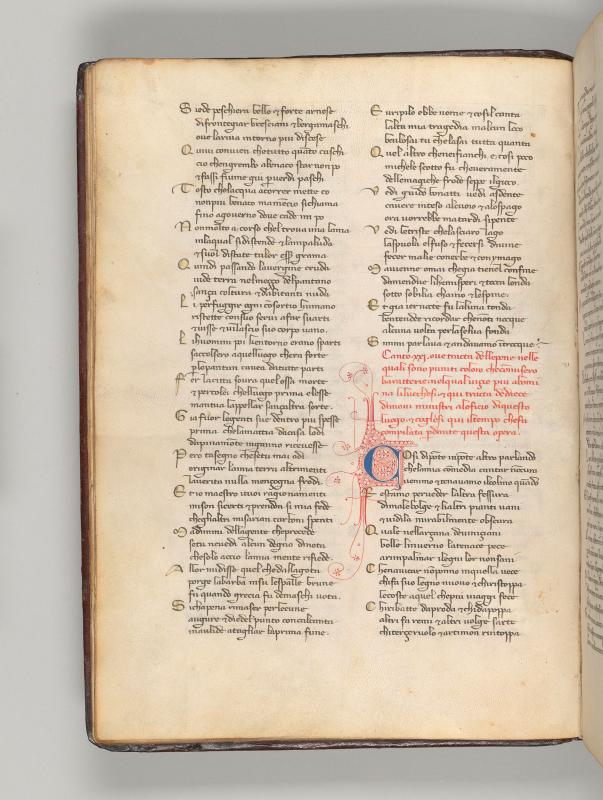 Siede peschiera bello & forte arnese
difronteggiar bresciani & bergamaschi
ove larina intorno piu discese
Quiui conuien che tutto quãto caschi
cio chengrembo abenaco star non po
& fassi fiume giu puerdi paschi
Tosto chelacqua acorrer mette co
non piu benaco ma mencio sichiama
fino agouerno doue cade im po
Non molto a corso chel troua una lama
inlaqual sidistende & lampaluda
& suol distate talor esser grama
Quindi passando lauergine cruda
uide terra nelmeggo delpantano
sança coltura & dabitanti nuda
Li perfuggir ogni cõsortio humano
ristette consuoi serui afar suarti
& uisse & uilascio suo corpo uano.
Lihuomini poi kentorno erano sparti
saccolsero aquelluogo chera forte
plopantan cauea datutte parti
Fer lacitta soura quellossa morte
& percolei chelluogo prima elesse
mantua lappellar sançaltra sorte.
Gia fuor legenti sue dentro piu spesse
prima chelamattia dicasa lodi
dapinamõte inganno riceuesse
Pero tasegno chesetu mai odi
originar lamia terra altrimenti
lauerita nulla mençogna frodi.
Et io maestro ituoi ragionamenti
mison sicerti & prendon si mia fede
cheglialtri misarian carboni spenti
Madimmi dellagente cheprocede
setu neuedi alcun degno dinota
chesolo accio lamia mente rifiede
Allor midisse quel chedallagota
porge labarba insu lespalle brune
fu quando grecia fu demaschi uota.
Sichapena rimaser perlecune
augure & diedel punto conculcanta
inaulide atagliar laprima fune.
Euripilo ebbe nome & cosil canta
lalta mia tragedia inalcun loco
benlosai tu chelasai tutta quanta
Quel altro chenefianchi e cosi poco
michele scotto fu cheueramente
dellemagiche frode seppe ilgioco.
Vedi guido bonatti uedi asdente
cauere inteso alcuoio & alospago
ora uorrebbe matardi sipente
Vedi letriste chelasciaro lago
laspuola elfuso & fecersi diuine
fecer malie conerbe & conymago
Mauienne omai chegia tienel confine
damendue lihemisperi & tocca londa
sotto sobilia chaino & lespine.
Et gia iernotte fu laluna tonda
bentendee ricordar chenon tinocque
alcuna uolta perlaselua fonda
Simmi parlaua & andauamo itrocque
Canto xxi. oue tratta dellepene nelle
quali sono puniti coloro checõmisero
baratterie. nelqual uiçio piu abomi
na lilucchesi. & qui tracta dediece
dimoni ministri aloficio diquesto
luogo. & coglesi qui iltempo chefu
compilata p dante questa opera.
Cosi diponte inpõte altro parlando
chelamia comedia cantar nõcura
uenimo & tenauamo ilcolmo quãdo
Restamo perueder laltra fessura
dimalebolge & laltri pianti uani
& uidila mirabilmente obscura
Quale nellarçana deuiniçiani
bolle linuerno latenace pece
arimpalmar ilegni lor nonsani
Chenauicar nõpõno inquella uece
chifa suo legno nuouo & chiristoppa
lecoste aquel chepiu uiaggi fece
Chiribatte daproda & chidapoppa
altri fa remi & altri uolge sarte
chiterçeruolo & artimon rintoppa